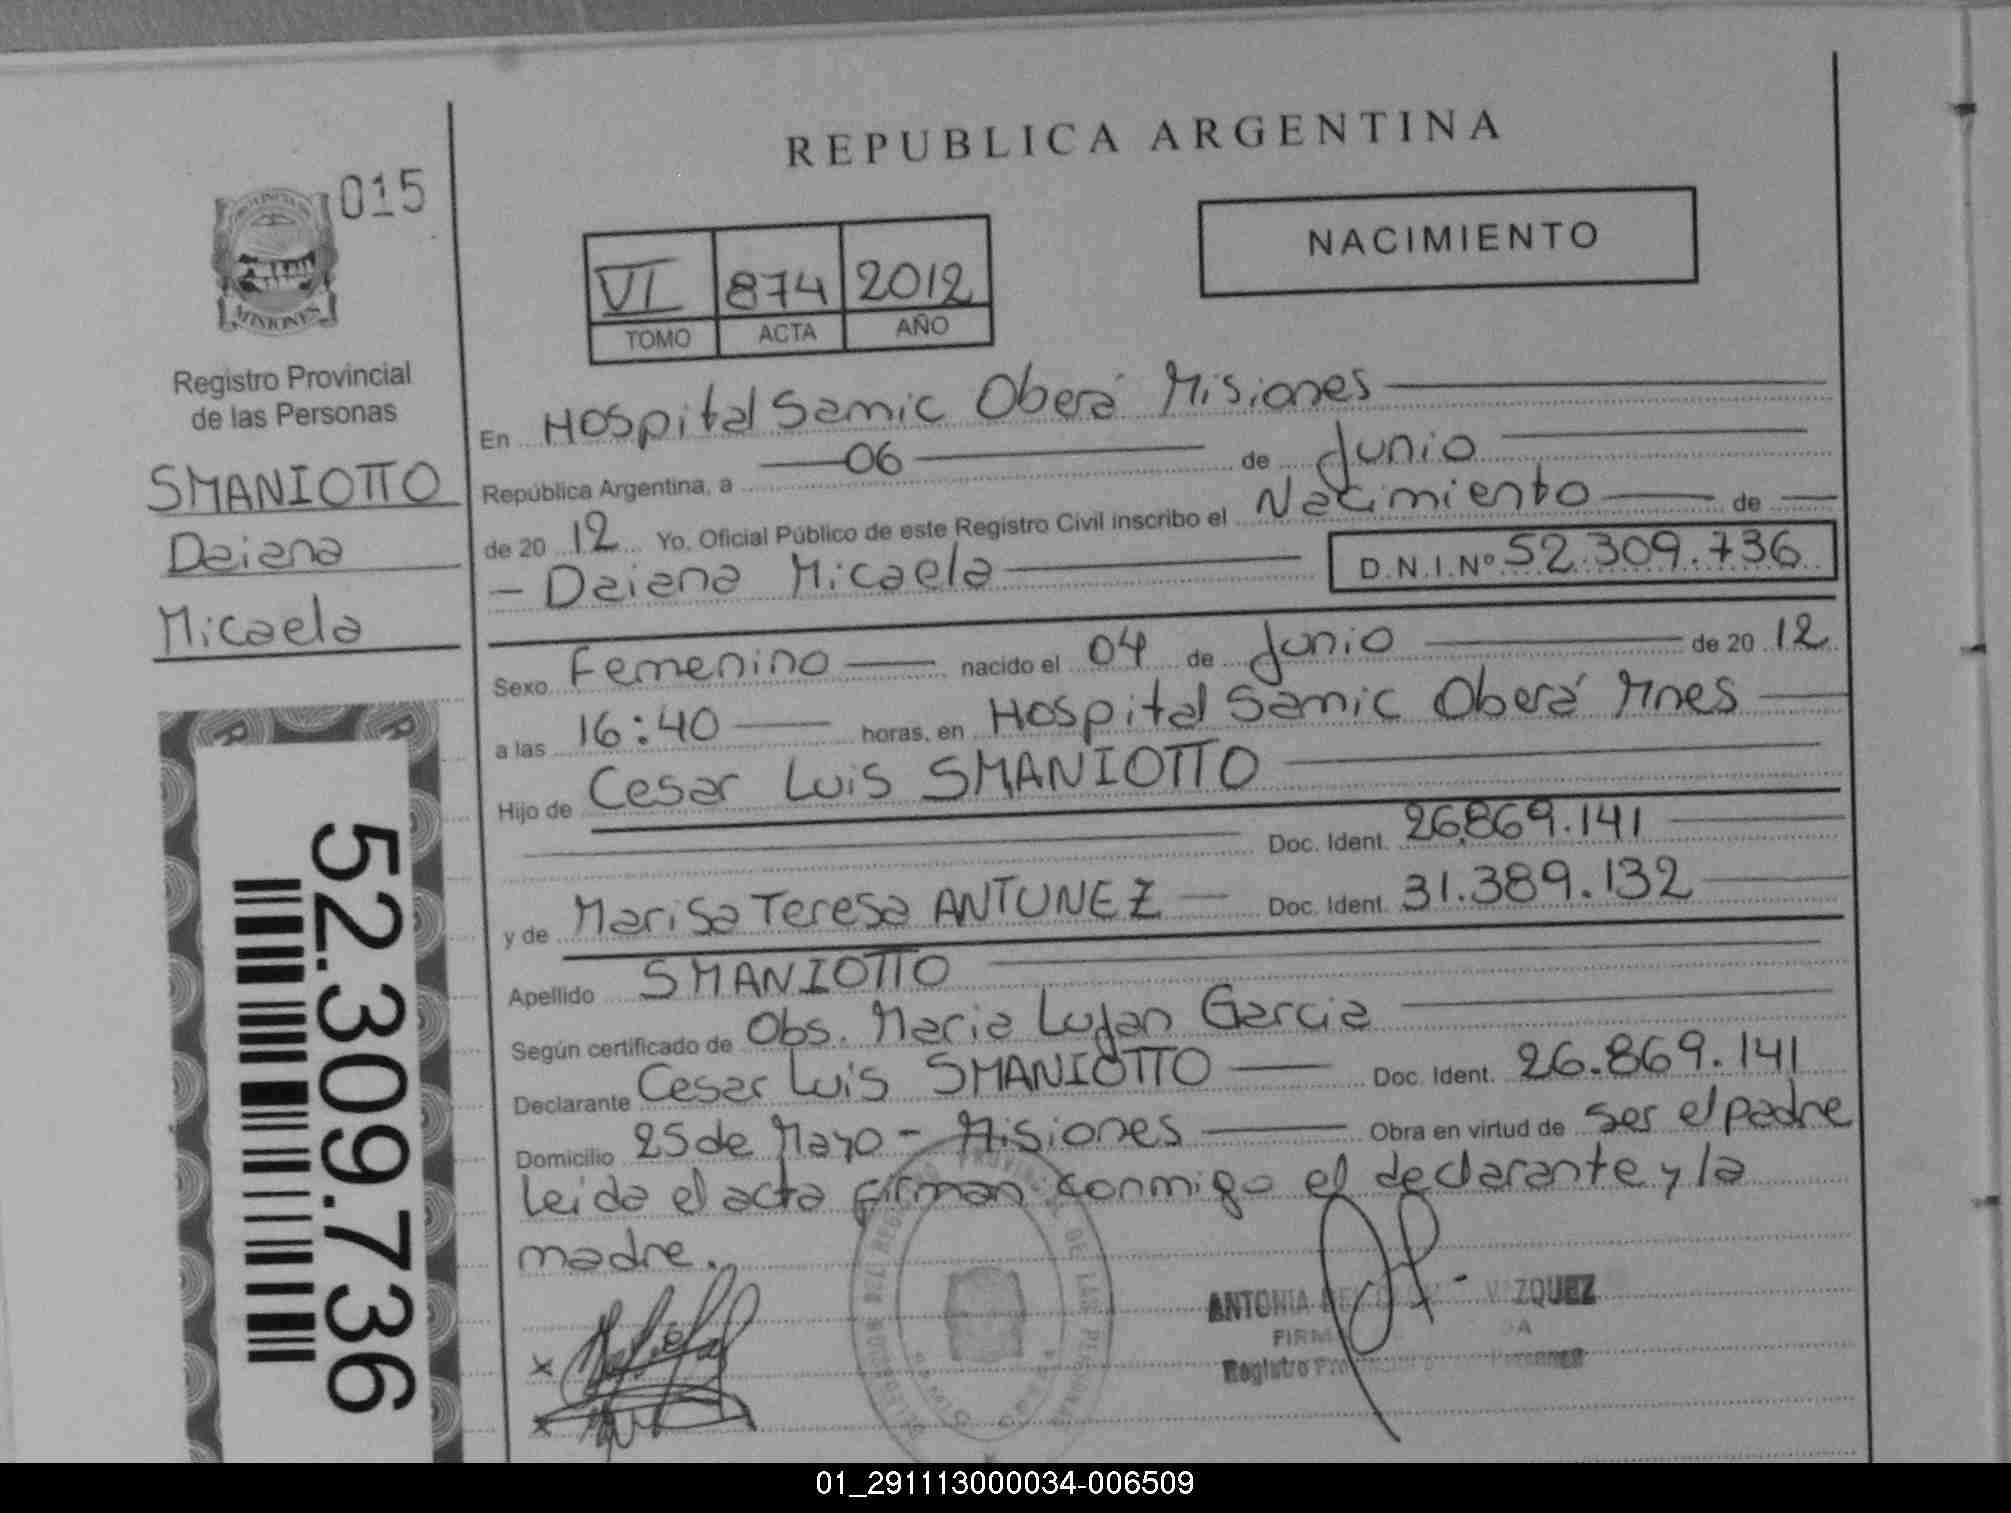 REPUBLICA ARGENTINA
015
NACIMIENTO
VI 874 2012
TOMO ACTA AÑO
MISIONES
Registro Provincial
de las Personas
SMANIOTTO
Daiana
Micaela
52.309.736
En Hospital Samic Oberá Misiones
República Argentina, a 06 de Junio
de 20 12 Yo, Oficial Público de este Registro Civil inscribo el Nacimiento de
Daiana Micaela D.N.I.Nº 52.309.736
Sexo Femenino nacido el 04 de Junio de 20 12
a las 16:40 horas, en Hospital Samic Oberá Mnes
Hijo de Cesar Luis SMANIOTTO
Doc. Ident. 26.869.141
y de Marisa Teresa ANTUNEZ Doc. Ident. 31.389.132
Apellido SMANIOTTO
Según certificado de Obs. Maria Lujan Garcia
Declarante Cesar Luis SMANIOTTO Doc. Ident. 26.869.141
Domicilio 25 de Mayo - Misiones Obra en virtud de ser el padre
Leida el acta firman conmigo el declarante y la
madre.
ANTONIA VAZQUEZ
Registro
01_291113000034-006509